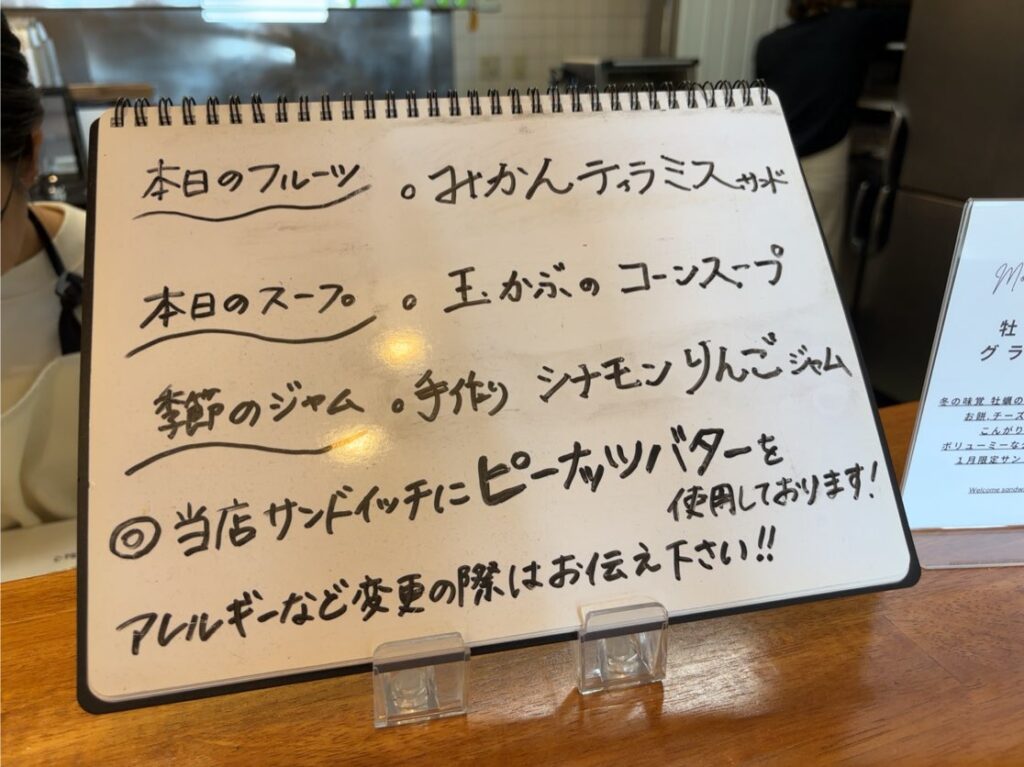 本日のフルーツ 。みかんティラミスサンド
本日のスープ 。玉かぶのコーンスープ
季節のジャム 。手作り シナモンりんごジャム
◎当店サンドイッチにピーナッツバターを
使用しております!
アレルギーなど変更の際はお伝え下さい!!
牡
グラ
冬の味覚 牡蠣の
お餅,チーズ
こんがり
ボリューミーな
1月限定サン
Welcome sandw